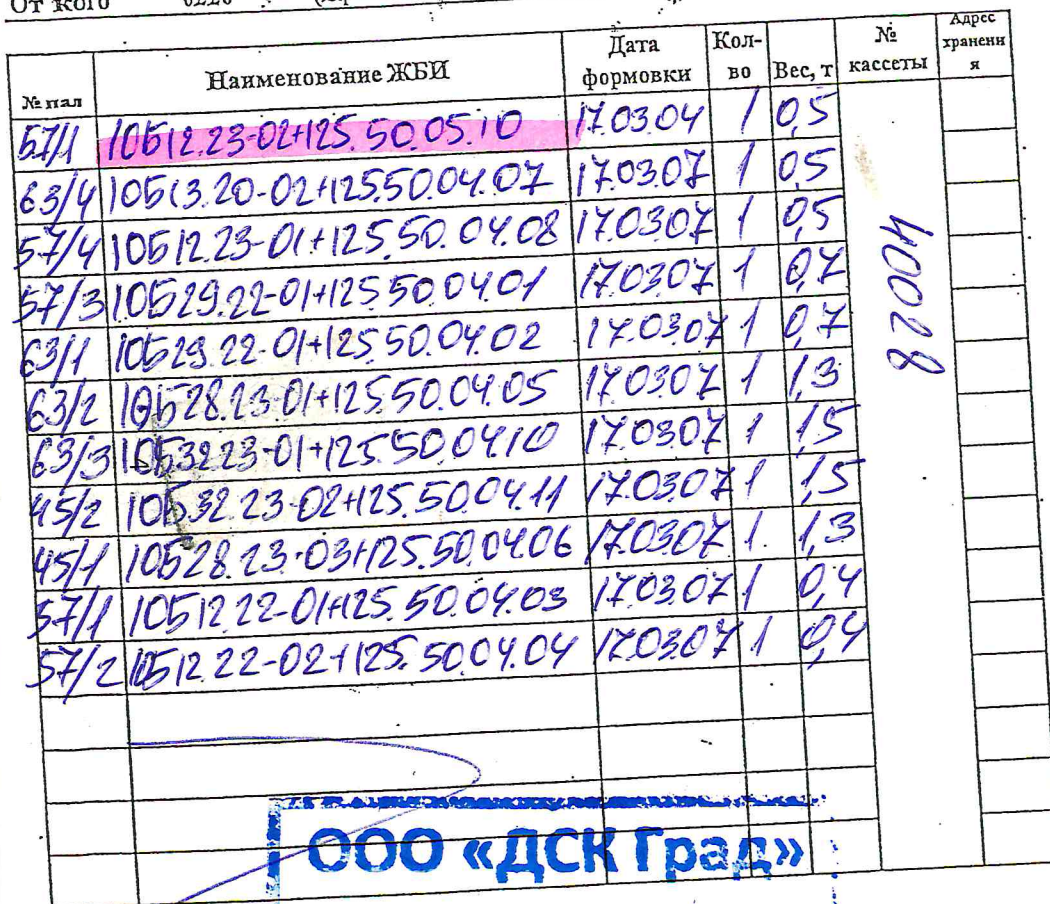 От кого 0220
№ пал Наименование ЖБИ Дата формовки Кол-во Вес, т № кассеты Адрес хранения
57/1 10Б12.23-02+125.50.05.10 17.03.04 1 0,5
63/4 10Б13.20-02+125.50.04.07 17.03.07 1 0,5
57/4 10Б12.23-01+125.50.04.08 17.03.07 1 0,5
57/3 10Б29.22-01+125.50.04.01 17.03.07 1 0,7
63/1 10Б29.22-01+125.50.04.02 17.03.07 1 0,7
63/2 10Б28.23-01+125.50.04.05 17.03.07 1 1,3
63/3 10Б32.23-01+125.50.04.10 17.03.07 1 1,5
45/2 10Б.32.23-02+125.50.04.11 17.03.07 1 1,5
45/1 10Б28.23-03+125.50.04.06 17.03.07 1 1,3
57/1 10Б12.22-01+125.50.04.03 17.03.07 1 0,4
57/2 10Б12.22-02+125.50.04.04 17.03.07 1 0,4
40028
ООО «ДСК Град»